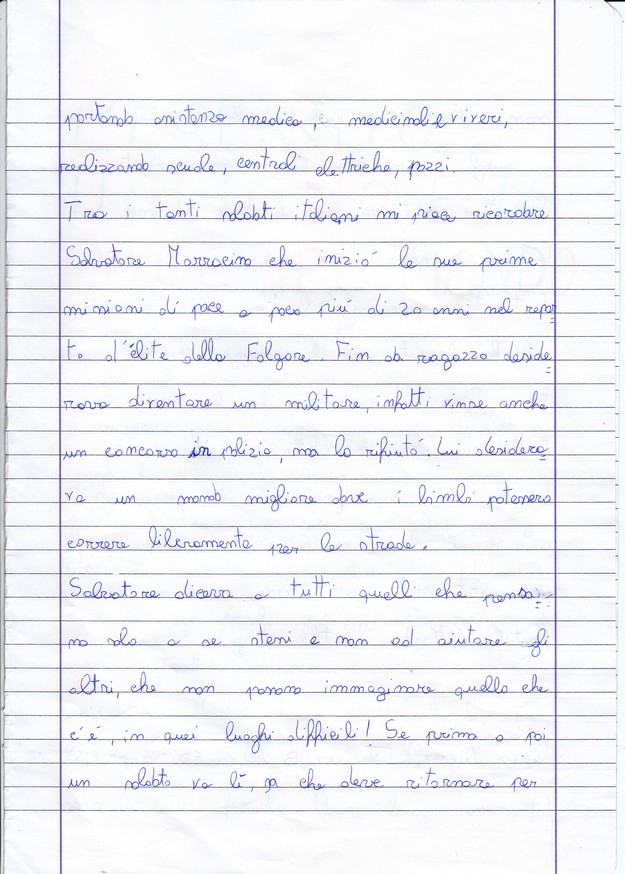 portando assistenza medica, e medicinali e viveri,
realizzando scuole, centrali elettriche, pozzi.
Tra i tanti soldati italiani mi piace ricordare
Salvatore Marracino che iniziò le sue prime
missioni di pace a poco più di 20 anni nel repar
to d'élite della Folgore. Fin da ragazzo deside=
rava diventare un militare, infatti vinse anche
un concorso in polizia, ma lo rifiutò. Lui desidera=
va un mondo migliore dove i bimbi potessero
correre liberamente per le strade.
Salvatore diceva a tutti quelli che pensa=
no solo a se stessi e non ad aiutare gli
altri, che non possono immaginare quello che
c'é, in quei luoghi difficili! Se prima o poi
un soldato va lì, sa che deve ritornare per